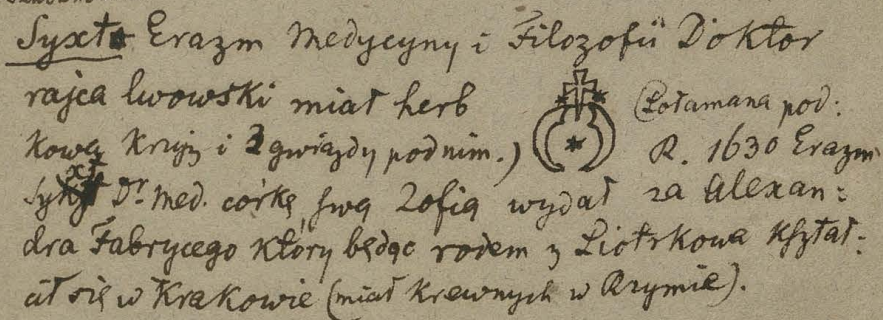 Syxt Erazm Medycyny i Filozofii Doktor
rajca lwowski miał herb (Połamana pod:
kowa, Krzyż i 3 gwiazdy pod nim.) R. 1630 Erazm
Syxt Dr med. córkę swą Zofią wydał za Alexan:
dra Fabrycego który będąc rodem z Piotrkowa kształ:
cił się w Krakowie (miał krewnych w Rzymie).